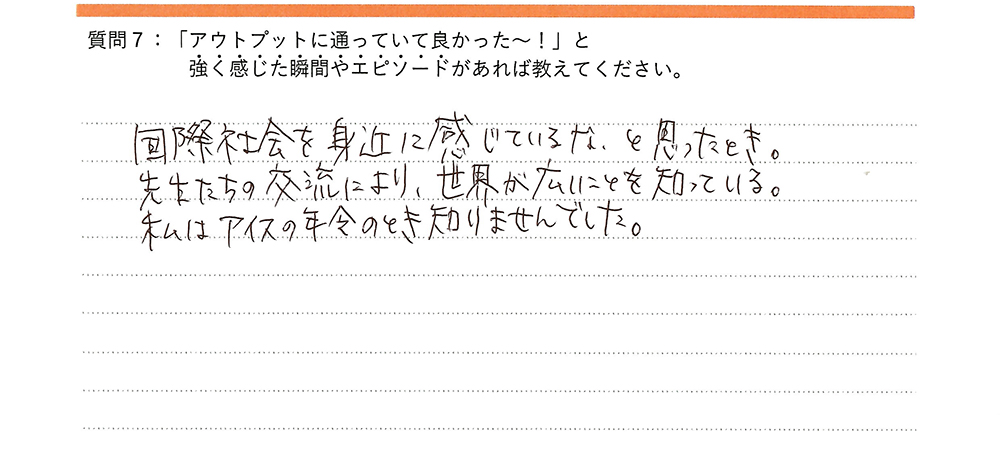 質問7：「アウトプットに通っていて良かった～！」と
強く感じた瞬間やエピソードがあれば教えてください。
国際社会を身近に感じているな、と思ったとき。
先生たちの交流により、世界が広いことを知っている。
私はアイスの年令のとき知りませんでした。